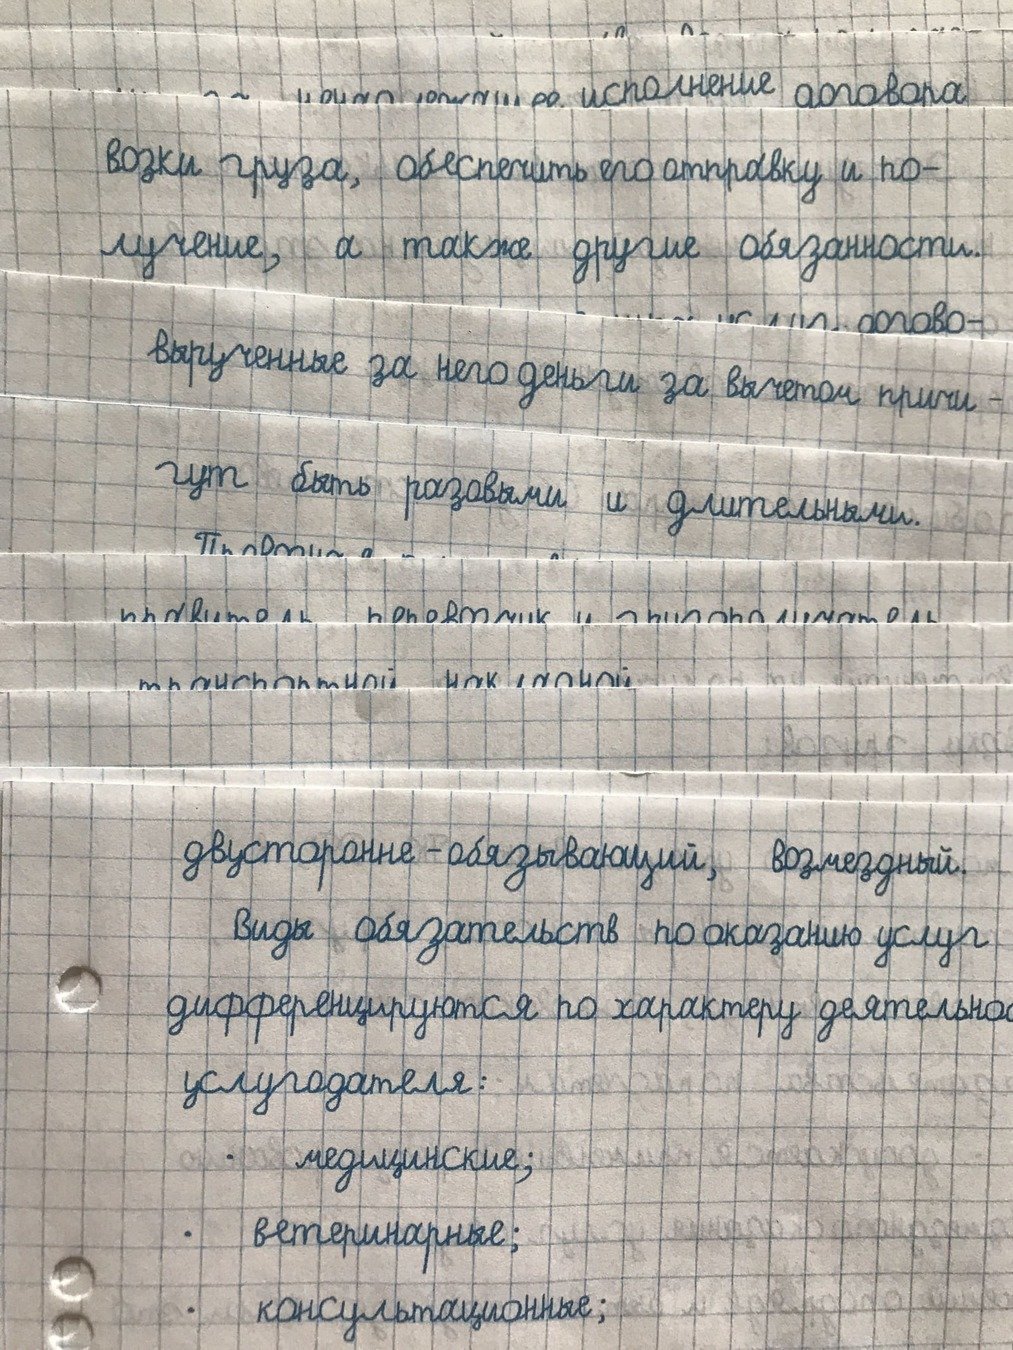 исполнение договора
возки груза, обеспечить его отправку и по-
лучение, а также другие обязанности.
догово-
вырученные за него деньги за вычетом причи-
гут быть разовыми и длительными.
правитель, перевозчик и грузополучатель
транспортной накладной
двусторонне-обязывающий, возмездный.
Виды обязательств по оказанию услуг
дифференцируются по характеру деятельнос
услугодателя:
· медицинские;
· ветеринарные;
· консультационные;